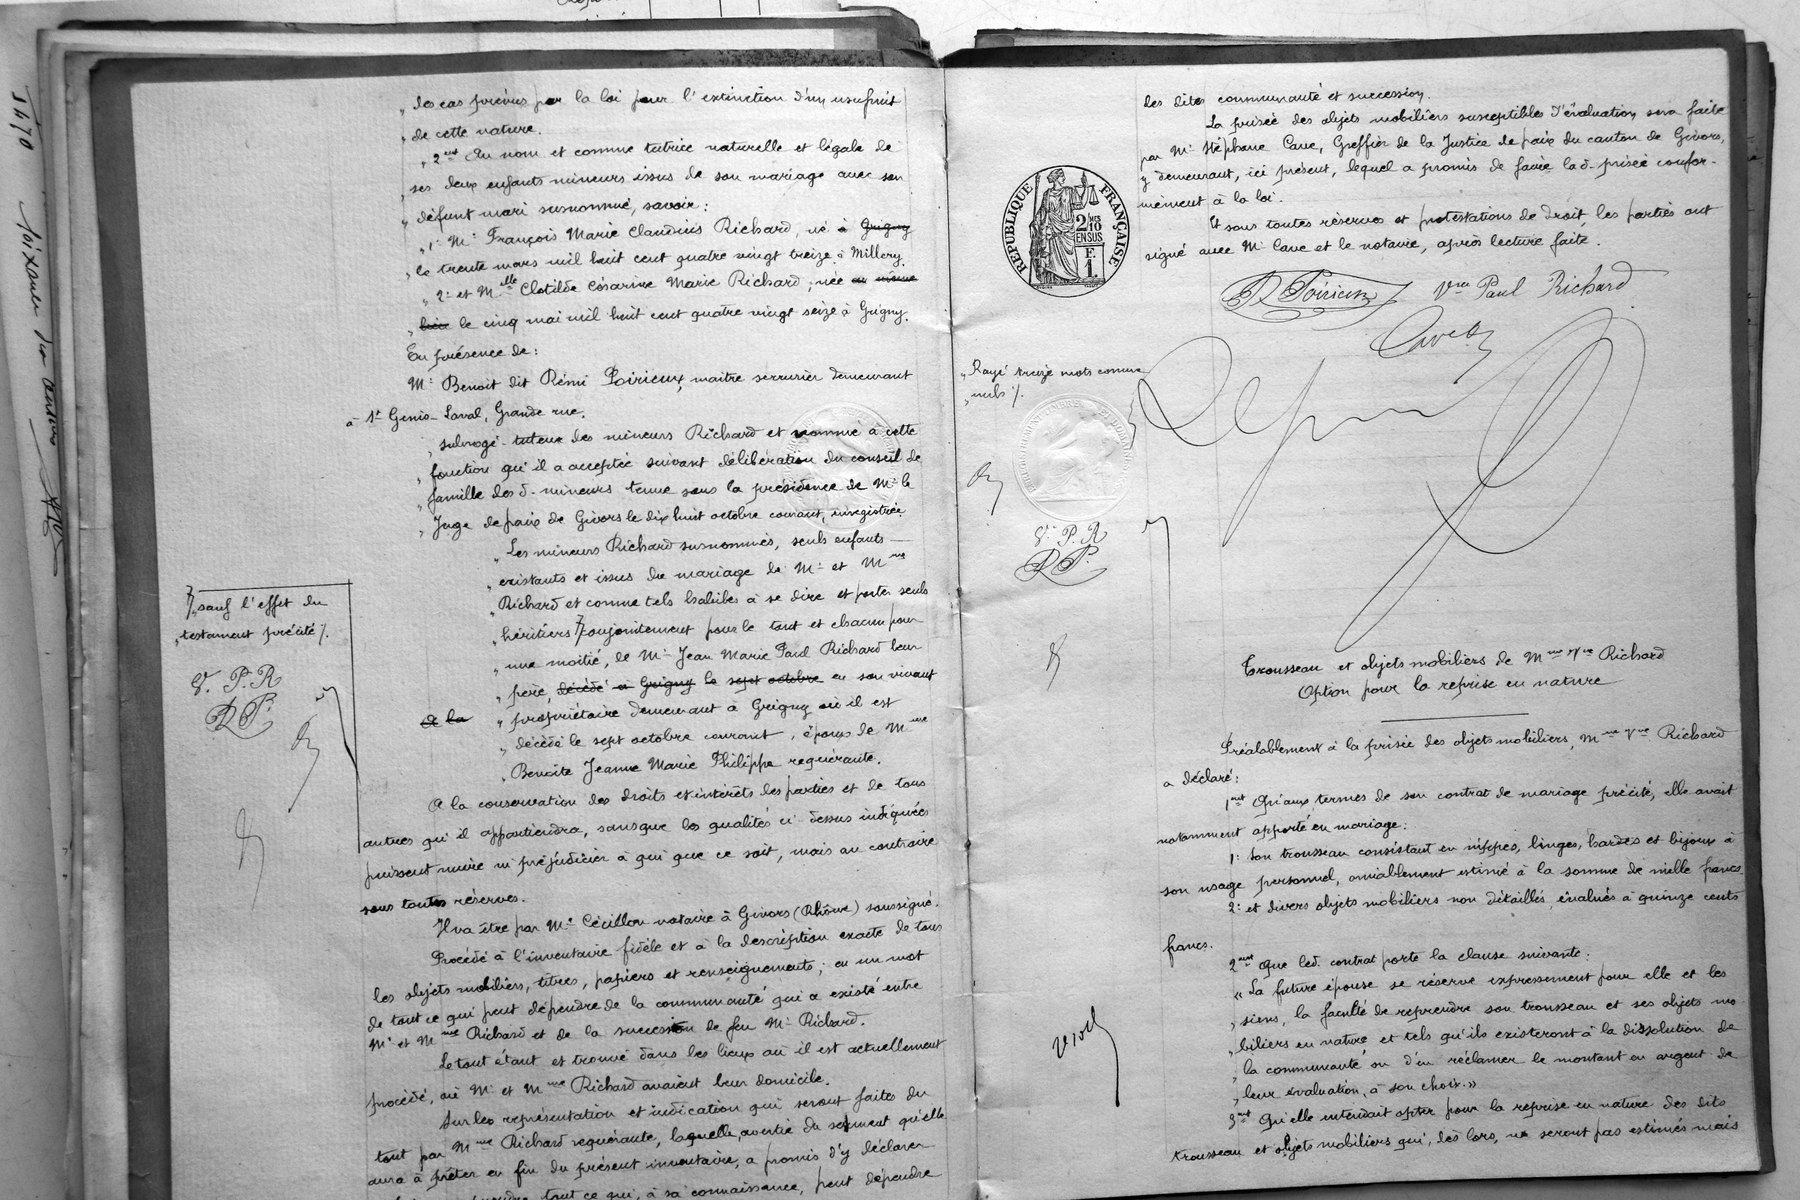 des cas prévus par la loi pour l'extinction d'un usufruit
de cette nature.
2ent Au nom et comme tutrice naturelle et légale de
ses deux enfants mineurs issus de son mariage avec son
défunt mari susnommé, savoir:
1: Mr François Marie Claudius Richard, né à Grigny
le trente mars mil huit cent quatre vingt treize à Millery.
2: et Melle Clotilde Césarine Marie Richard, née au même
lieu le cinq mai mil huit cent quatre vingt seize à Grigny.
En présence de:
Mr Benoit dit Rémi Poirieux, maître serrurier demeurant
à St Genis-Laval, Grande rue.
subrogé-tuteur des mineurs Richard et nommé à cette
fonction qu'il a acceptée suivant délibération du conseil de
famille des d. mineurs tenue sous la présidence de Mr le
Juge de paix de Givors le dix huit octobre courant, enregistrée.
Les mineurs Richard susnommés, seuls enfants
existants et issus du mariage de Mr et Mme
Richard et comme tels habiles à se dire et porter seuls
héritiers conjointement pour le tout et chacun pour
une moitié, de Mr Jean Marie Paul Richard leur
père, décédé à Grigny le sept octobre en son vivant
de la propriétaire demeurant à Grigny où il est
décédé le sept octobre courant, époux de Mme
Benoite Jeanne Marie Philippe requérante.
sauf l'effet du
testament précité /.
V. P. R
R P.
A la conservation des droits et intérêts des parties et de tous
autres qu'il appartiendra, sans que les qualités ci dessus indiquées
puissent nuire ni préjudicier à qui que ce soit, mais au contraire
sous toutes réserves.
Il va être par Me Cécillon notaire à Givors (Rhône) soussigné.
Procédé à l'inventaire fidèle et à la description exacte de tous
les objets mobiliers, titres, papiers et renseignements; en un mot
de tout ce qui peut dépendre de la communauté qui a existé entre
Mr et Mme Richard et de la succession de feu Mr Richard.
Le tout étant et trouvé dans les lieux où il est actuellement
procédé, où Mr et Mme Richard avaient leur domicile.
Sur les représentation et indication qui seront faites du
tout par Mme Richard requérante, laquelle, avertie du serment qu'elle
aura à prêter en fin du présent inventaire, a promis d'y déclarer
tout ce qui, à sa connaissance, peut dépendre
des dites communauté et succession.
La prisée des objets mobiliers susceptibles d'évaluation sera faite
par Mr Stéphane Cave, Greffier de la Justice de paix du canton de Givors,
y demeurant, ici présent, lequel a promis de faire lad. prisée confor-
mément à la loi.
Et sous toutes réserves et protestations de droit, les parties ont
signé avec Mr Cave et le notaire, après lecture faite.
RÉPUBLIQUE FRANÇAISE
2 MES
10
EN SUS
F.
1.
R Poirieux
Vve Paul Richard
Cave
Rayé treize mots comme
nuls /.
V. P. R
R P.
Trousseau et objets mobiliers de Mme Vve Richard
Option pour la reprise en nature
Préalablement à la prisée des objets mobiliers, Mme Vve Richard
a déclaré:
1ent Qu'aux termes de son contrat de mariage précité, elle avait
notamment apporté en mariage:
1: Son trousseau consistant en nippes, linges, hardes et bijoux à
son usage personnel, amiablement estimé à la somme de mille francs
2: et divers objets mobiliers non détaillés, évalués à quinze cents
francs.
2ent Que led. contrat porte la clause suivante:
« La future épouse se réserve expressement pour elle et les
siens, la faculté de reprendre son trousseau et ses objets mo
biliers en nature et tels qu'ils existeront à la dissolution de
la communauté ou d'en réclamer le montant en argent de
leur évaluation, à son choix.»
3ent Qu'elle entendait opter pour la reprise en nature des dits
trousseau et objets mobiliers qui, dès lors, ne seront pas estimés mais